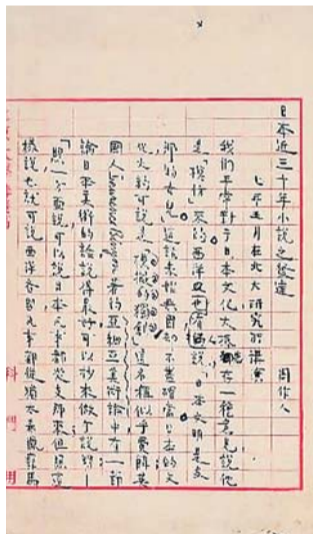 日本近三十年小說之發達
七年四月在北大研究所講演 周作人
我們平常對于日本文化大抵存一種意見說他
是「模仿」來的西洋也有人說日本文明是支
那的女兒這話未始無因却不盡確當日本的文
化大約可說是「模擬的獨創」這名稱似乎費解英
國人Laurence Binyon著的亞細亞美術論中有一節
論日本美術的話說得最好可以抄來做个說明—
「照一方面說可以說日本凡事都從支那來但照這
樣說也就可說西洋各國凡事都從猶太希臘羅馬